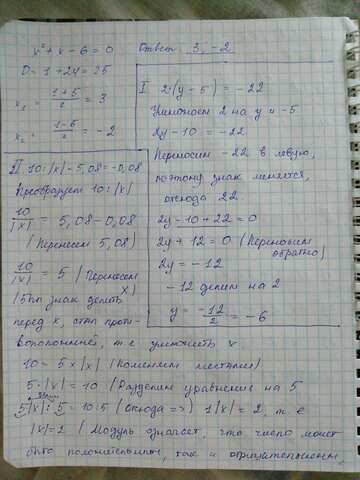 x² + x - 6 = 0
D = 1 + 24 = 25
x₁ = (1+5)/2 = 3
x₂ = (1-5)/2 = -2
Ответ: 3, -2
I 2·(y - 5) = -22
Умножаем 2 на y и -5
2y - 10 = -22
Переносим -22 в левую,
поэтому знак меняется,
отсюда 22.
2y - 10 + 22 = 0
2y + 12 = 0 (Переносим
обратно)
2y = -12
-12 делим на 2
y = -12/2 = -6
II 10:|x| - 5,08 = -0,08
Преобразуем 10:|x|
10/|x| = 5,08 - 0,08
(Перенесём 5,08)
10/|x| = 5 (Перенесём
x)
(Был знак делить
перед x, стал проти-
воположный, т.е умножить x.
10 = 5 × |x| (Поменяем местами)
5·|x| = 10 (Разделим уравнение на 5
5|x| : 5 = 10 : 5 (Отсюда =>) 1|x| = 2, т.е
|x| = 2 (Модуль означает, что число может
быть положительным, так и отрицательным